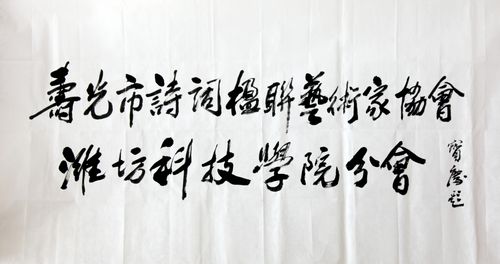 壽光市詩詞楹聯藝術家協會
濰坊科技學院分會
寶慶題